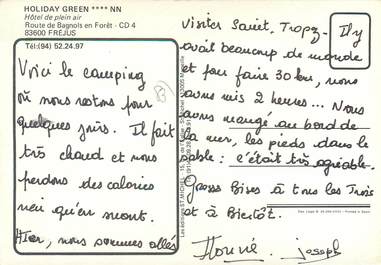 HOLIDAY GREEN **** NN
Hôtel de plein air
Route de Bagnols en Forêt - CD 4
83600 FREJUS
Tél:(94) 52.24.97
Voici le camping
où nous restons pour
quelques jours. Il fait
très chaud et nous
perdons des calories
rien qu'en suant.
Hier, nous sommes allés
visiter Saint, Tropez. Il y
avait beaucoup de monde
et pour faire 30 km, nous
avons mis 2 heures... Nous
avons mangé au bord de
la mer, les pieds dans le
sable : c'était très agréable.
Grosses Bises à tous les Trois
et à Bientôt.
Joseph